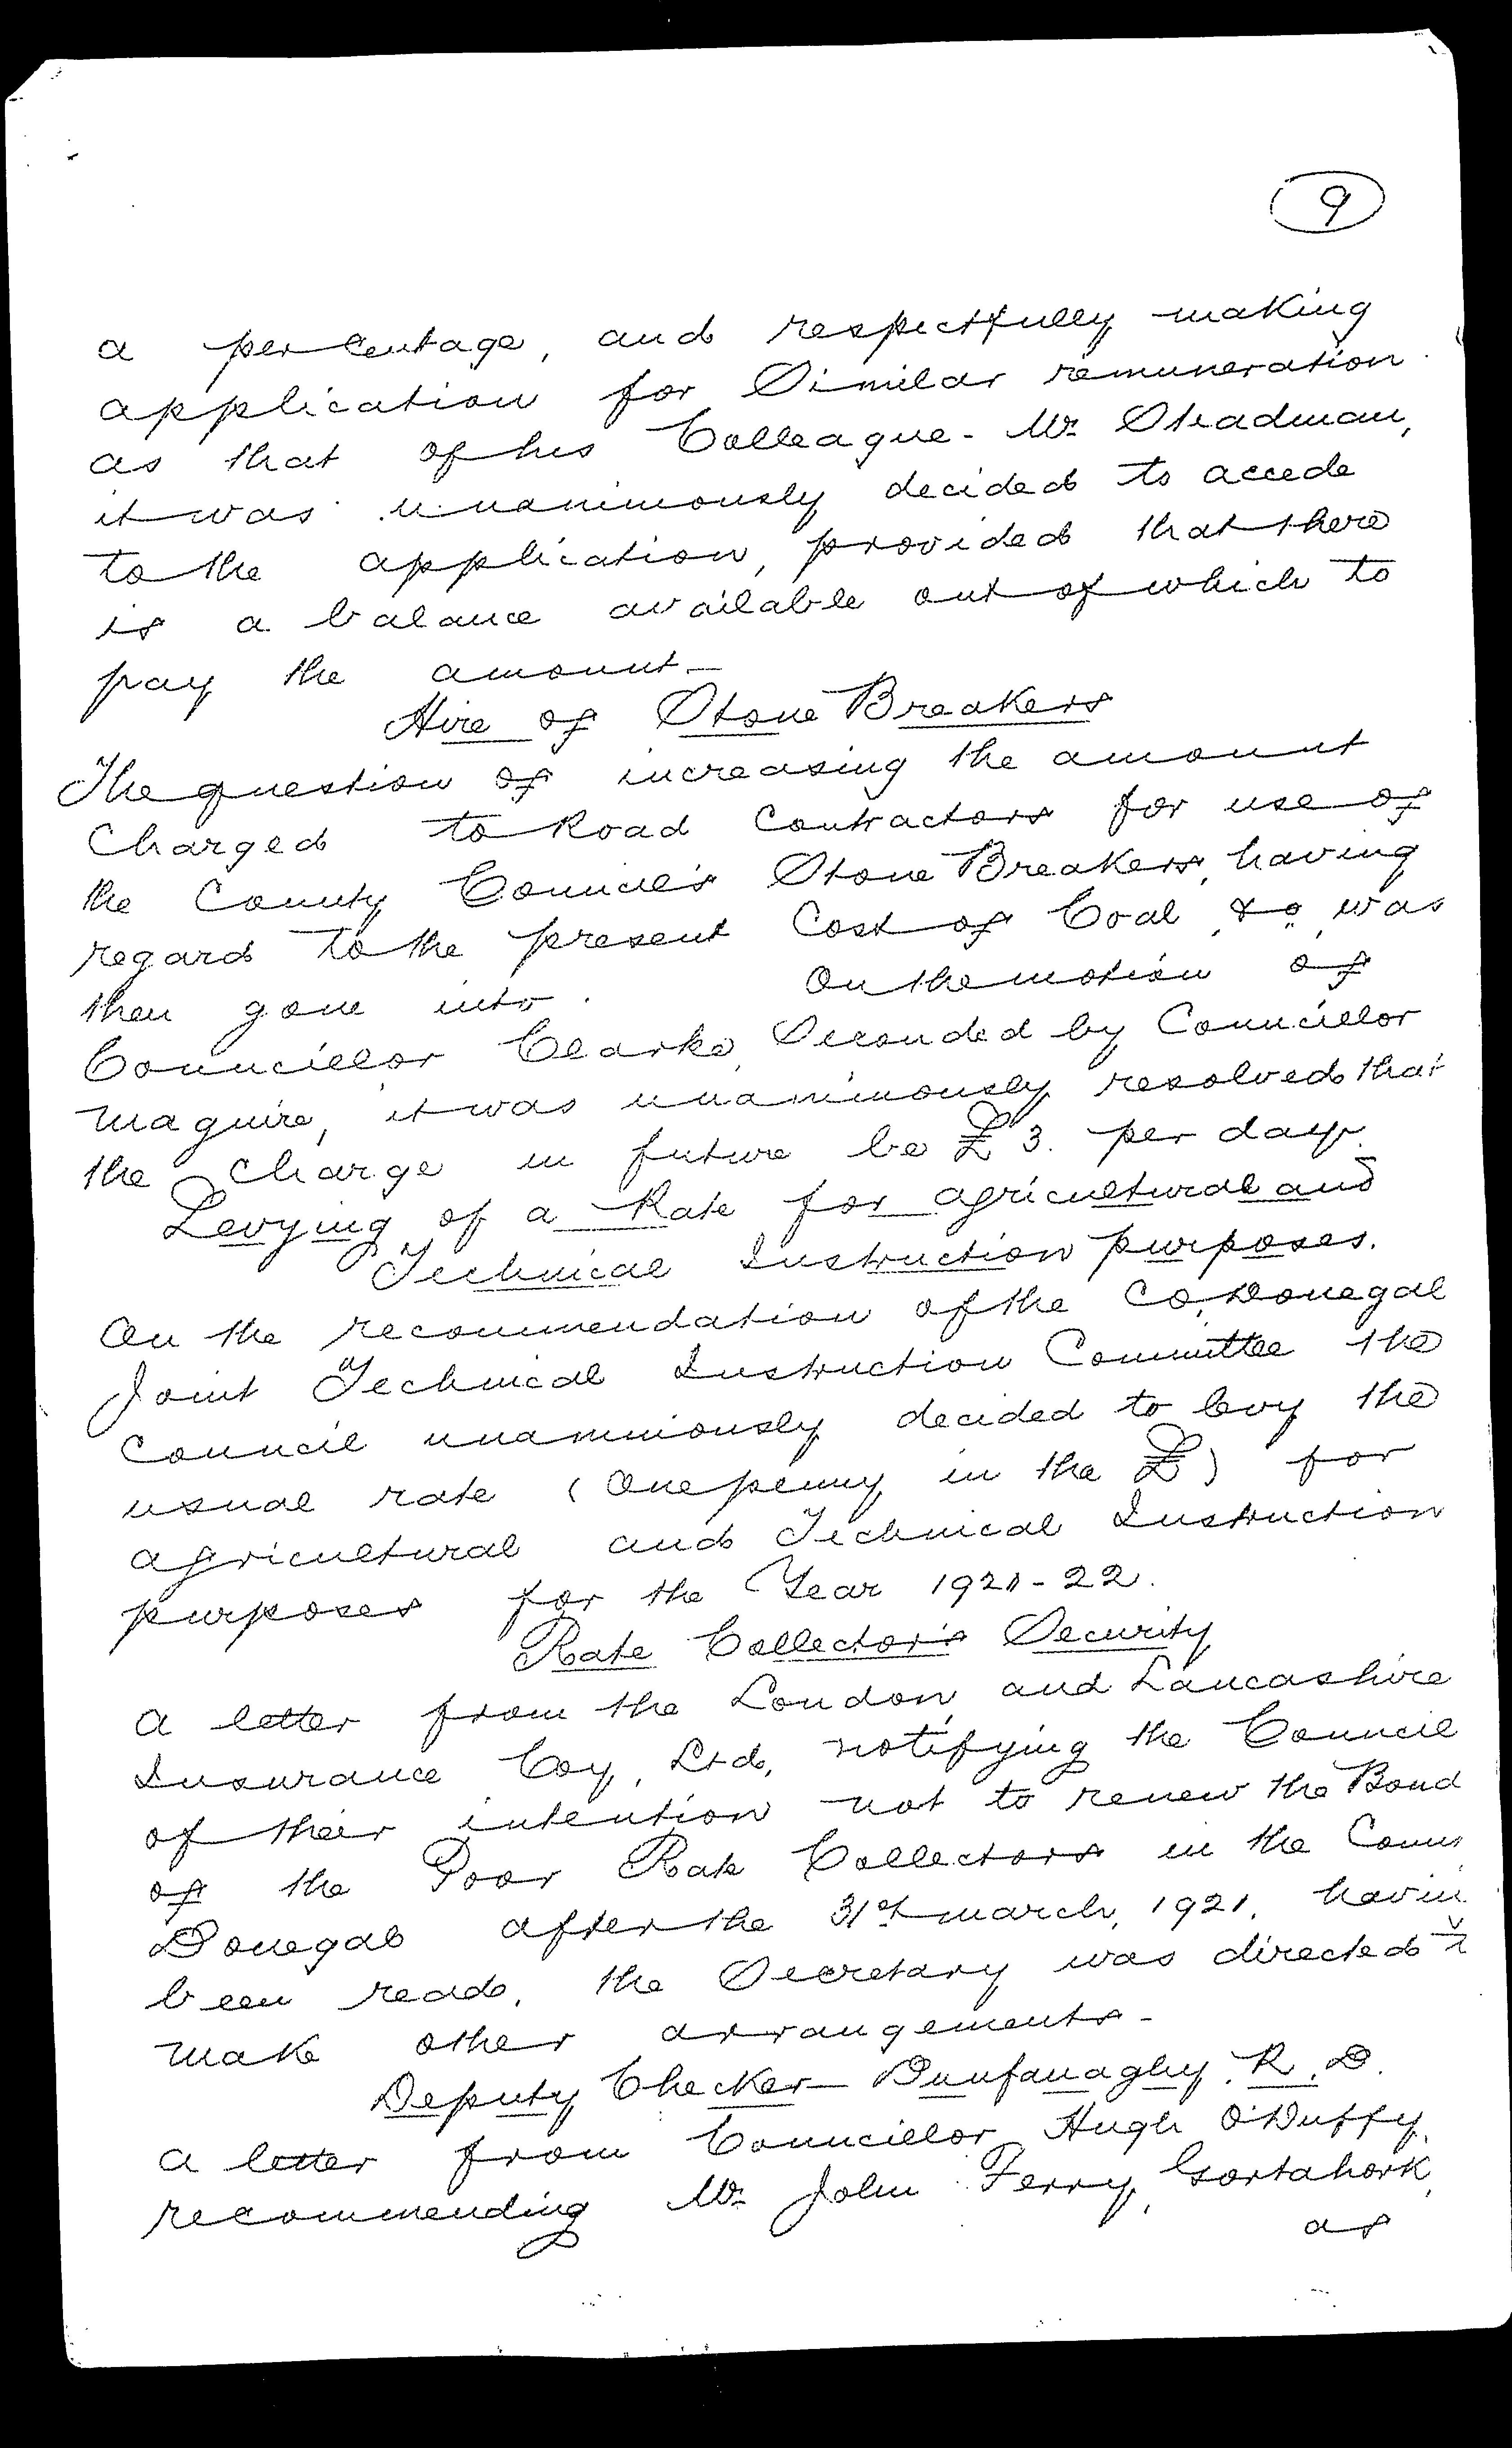 9
a percentage, and respectfully making
application for Similar remuneration
as that of his Colleague - Mr Steadman,
it was unanimously decided to accede
to the application, provided that there
is a balance available out of which to
pay the amount.—
Hire of Stone Breakers
The question of increasing the amount
Charged to Road Contractors for use of
the County Council's Stone Breakers, having
regard to the present Cost of Coal, &c, was
then gone into. On the motion of
Councillor Clarke, Seconded by Councillor
Maguire, it was unanimously resolved that
the Charge in future be £3. per day.
Levying of a Rate for agricultural and
Technical Instruction purposes.
On the recommendation of the Co, Donegal
Joint Technical Instruction Committee the
Council unanimously decided to levy the
usual rate (One penny in the £) for
agricultural and Technical Instruction
purposes for the Year 1921-22.
Rate Collector's Security
a letter from the London, and Lancashire
Insurance Coy, Ltd, notifying the Council
of their intention not to renew the Bond
of the Poor Rate Collectors in the Coun
Donegal after the 31st March, 1921, havin
been read, the Secretary was directed
make other arrangements-
Deputy Checker- Dunfanaghy. R. D.
a letter from Councillor Hugh O'Duffy,
recommending Mr John Ferry, Gortahork,
as